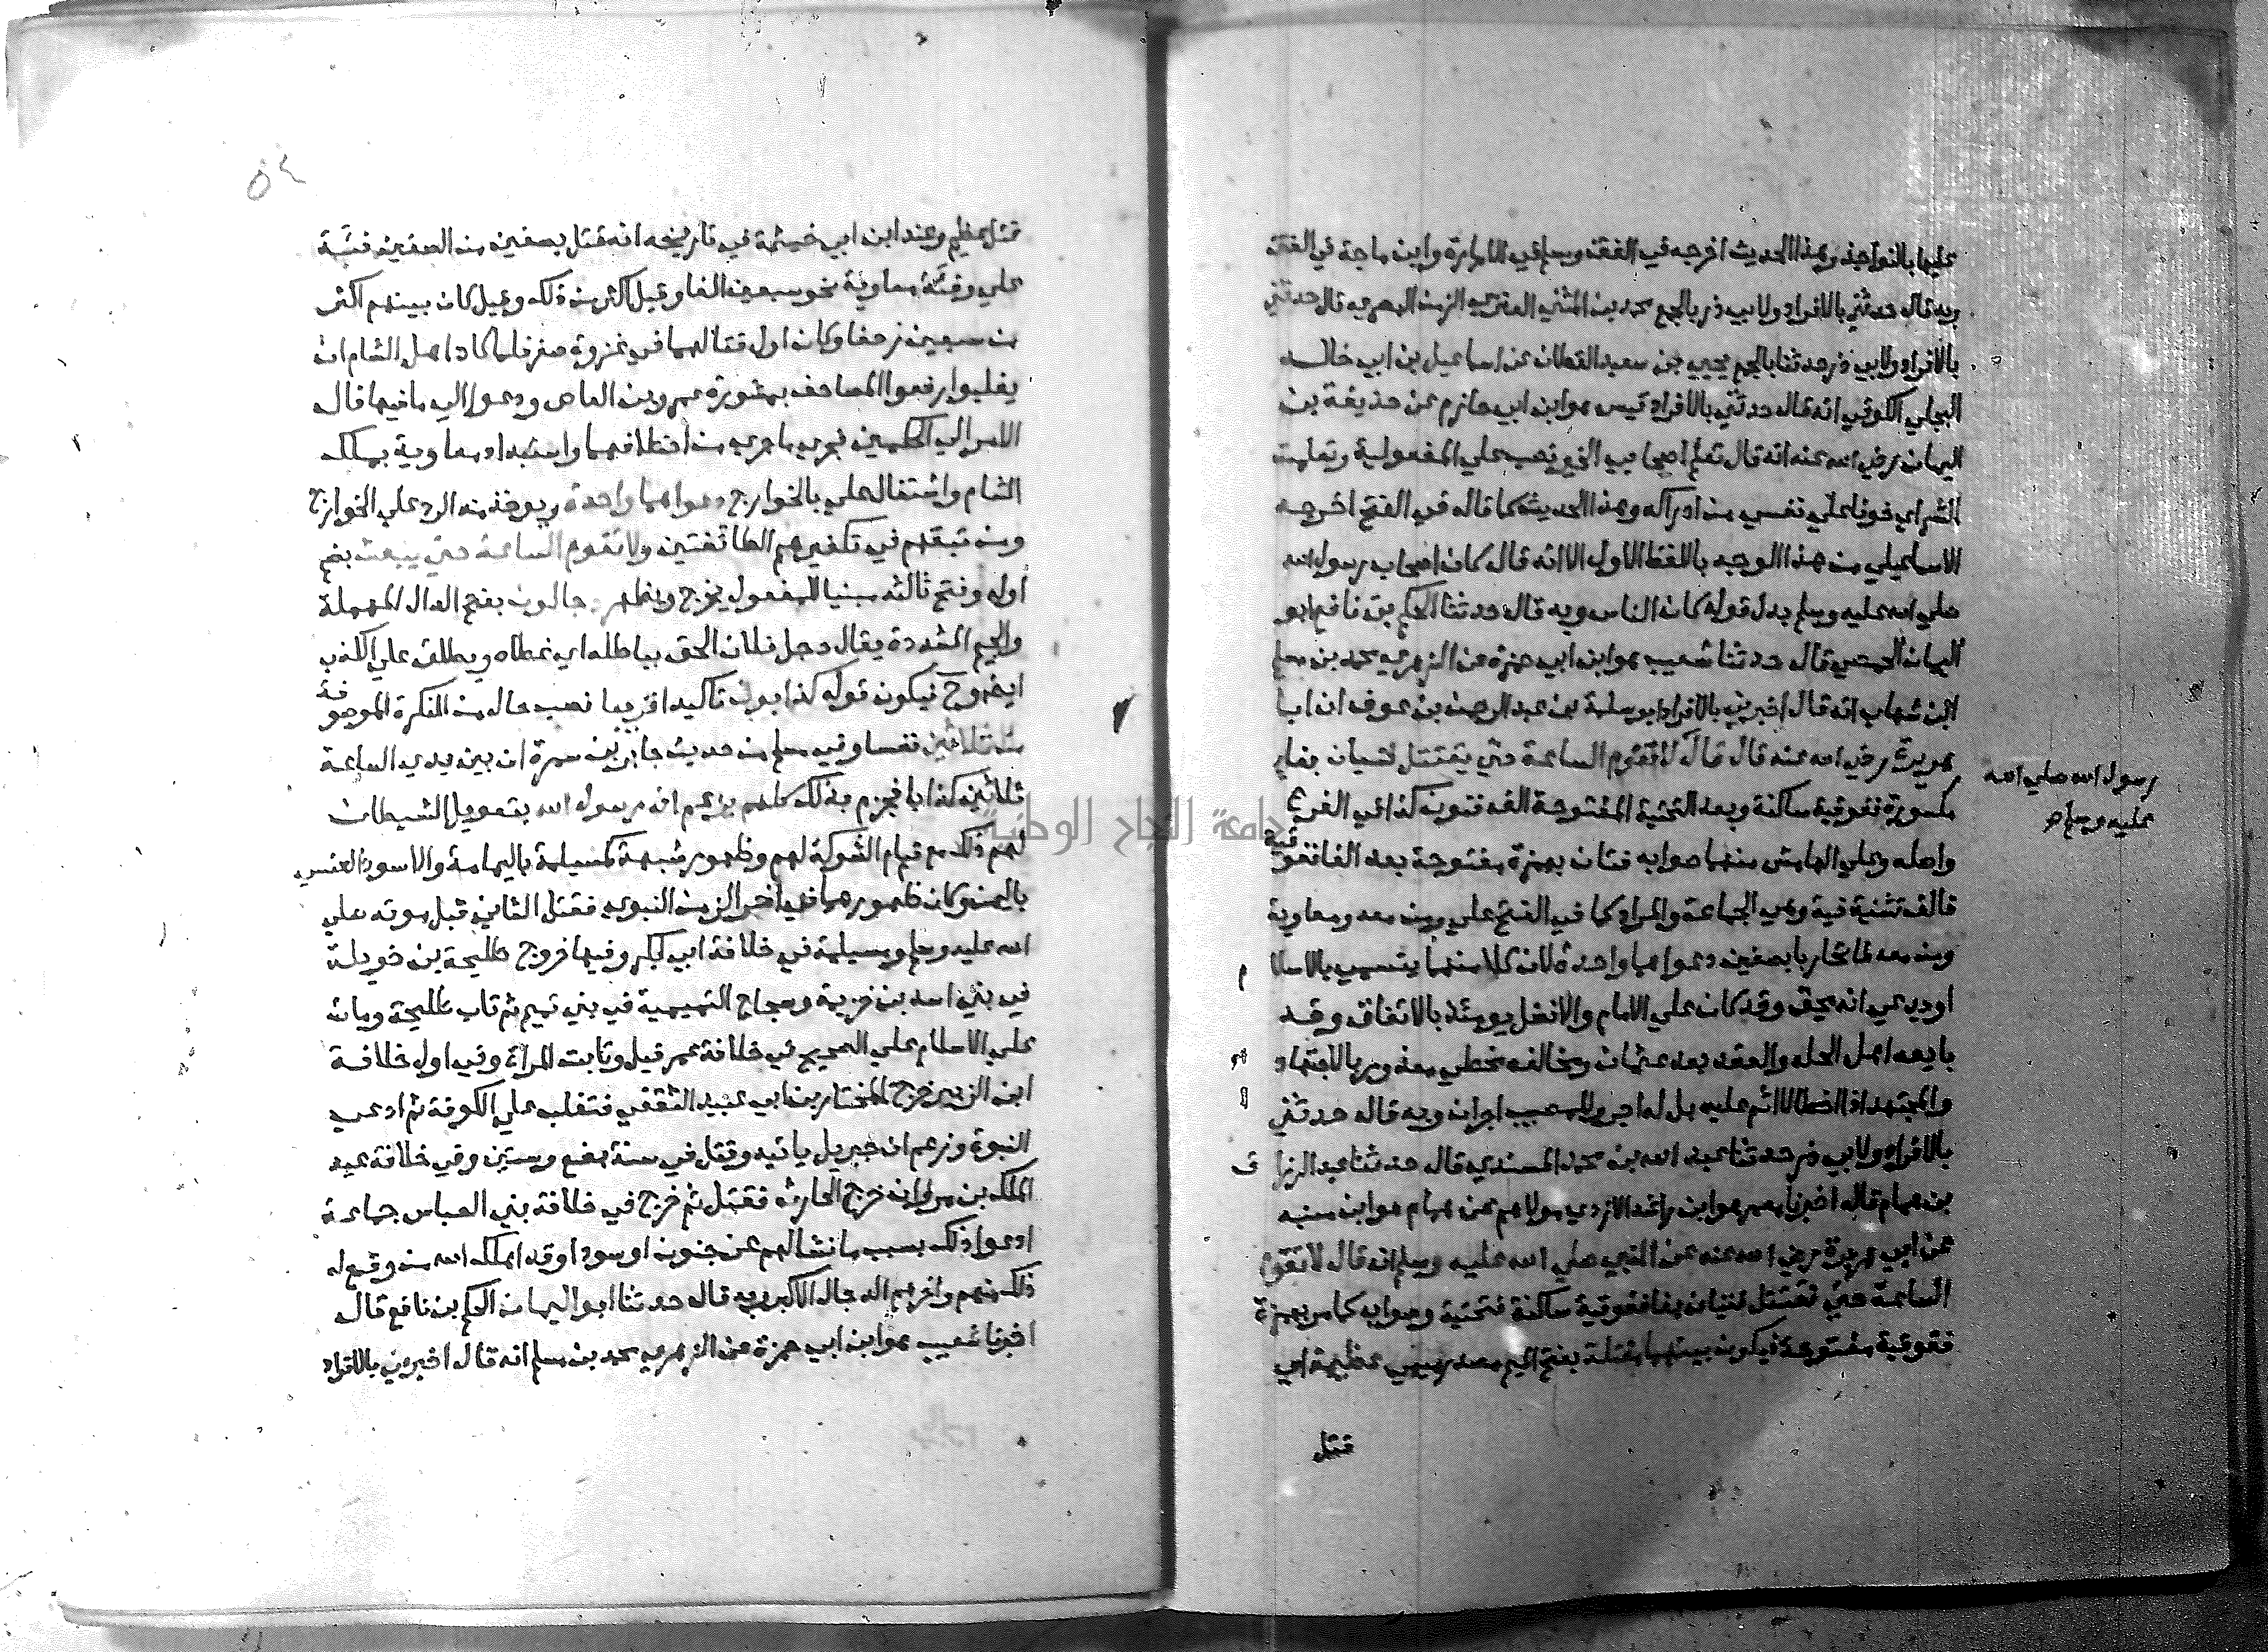 عليها بالنواجذ وهذا الحديث اخرجه في الفتن ومسلم في الامارة وابن ماجة في الفتن
وبه قال حدثني بالافراد ولابي ذر بالجمع محمد بن المثني العنزي الزمن البصري قال حدثني
بالافراد ولابي ذر حدثنا بالجمع يحيي بن سعيد القطان عن اسماعيل بن ابي خالد
البجلي الكوفي انه قال حدثني بالافراد قيس هو ابن ابي حازم عن حذيفة بن
اليمان رضي الله عنه انه قال تعلم اصحابي الخير نصب علي المفعولية وتعلمت
الشر اي خوفا علي نفسي من ادراكه وهذا الحديث كما قاله في الفتح اخرجه
الاسماعيلي من هذا الوجه باللفظ الاول الا انه قال كان اصحاب رسول الله
صلي الله عليه وسلم بدل قوله كان الناس وبه قال حدثنا الحكم بن نافع ابو
اليمان الحمصي قال حدثنا شعيب هو ابن ابي حمزة عن الزهري محمد بن مسلم
ابن شهاب انه قال اخبرني بالافراد ابو سلمة بن عبد الرحمن بن عوف ان ابا
هريرة رضي الله عنه قال قال لا تقوم الساعة حتي يقتتل فتيان بفاء
رسول الله صلي الله
عليه وسلم صح
مكسورة ففوقية ساكنة وبعد التحتية المفتوحة الف فنون كذا في الفرع
واصله وعلي الهامش منهما صوابه فئتان بهمزة مفتوحة بعد الفا ففوقية
فالف تثنية فية وهي الجماعة والمراد كما في الفتح علي ومن معه ومعاوية
ومن معه لما تحاربا بصفين دعواهما واحدة لان كلا منهما يتسمي بالاسلام
او يدعي انه محق وقد كان علي الامام والافضل يومئذ بالاتفاق وقد
بايعه اهل الحل والعقد بعد عثمان ومخالفه مخطي معذور بالاجتهاد
والمجتهد اذا اخطا لا اثم عليه بل له اجر وللمصيب اجران وبه قال حدثني
بالافراد ولابي ذر حدثنا عبد الله بن محمد المسندي قال حدثنا عبد الرزاق
بن همام قال اخبرنا معمر هو ابن راشد الازدي مولاهم عن همام هو ابن منبه
عن ابي هريرة رضي الله عنه عن النبي صلي الله عليه وسلم انه قال لا تقوم
الساعة حتي تقتتل فتيان بفا ففوقية ساكنة فتحتية وصوابه كما مر بهمزة
ففوقية مفتوحة فيكون بينهما مقتلة بفتح الميم مصدر ميمي عظيمة اي
قتل
٥٤
قتل عظيم وعند ابن ابي خيثمة في تاريخه انه قتل بصفين من الصفين فئة
علي وفئة معاوية نحو سبعين الفا وقيل اكثر من ذلك وقيل كان بينهم اكثر
من سبعين زحفا وكان اول قتالهما في غزوة صفر فلما كاد اهل الشام ان
يغلبوا رفعوا المصاحف بمشورة عمرو بن العاص ودعوا الي ما فيها فال
الامر الي الحكمين فجري ما جري من اختلافهما واستبداد معاوية بملك
الشام واشتغال علي بالخوارج دعواهما واحدة ويوخذ منه الرد علي الخوارج
ومن تبعهم في تكفيرهم الطائفتين ولا تقوم الساعة حتي يبعث بضم
اوله وفتح ثالثه مبنيا للمفعول يخرج ويظهر دجالون بفتح الدال المهملة
والجيم المشددة يقال دجل فلان الحق بباطله اي غطاه ويطلق علي الكذب
ايضا وح فيكون قوله كذابون تاكيدا قريبا نصب حال من النكرة الموصوفة
من ثلاثين نفسا وفي مسلم من حديث جابر بن سمرة ان بين يدي الساعة
ثلاثين كذابا فجزم بذلك كلهم يزعم انه رسول الله بتسويل الشيطان
لهم ذلك مع قيام الشوكة لهم وظهور شبهة كمسيلمة باليمامة والاسود العنسي
باليمن وكان ظهورهما في اخر الزمن النبوي فقتل الثاني قبل موته صلي
الله عليه وسلم ومسيلمة في خلافة ابي بكر وفيها خروج طليحة بن خويلد
في بني اسد بن خزيمة وسجاح التميمية في بني تميم ثم تاب طليحة ومات
علي الاسلام علي الصحيح في خلافة عمر قيل وتابت المراة وفي اول خلافة
ابن الزبير خرج المختار بن ابي عبيد الثقفي فتغلب علي الكوفة ثم ادعي
النبوة وزعم ان جبريل ياتيه وقتل في سنة بضع وستين وفي خلافة عبد
الملك بن مروان خرج الحارث فقتل ثم خرج في خلافة بني العباس جماعة
ادعوا ذلك بسبب ما نشا لهم عن جنون او سودا وقد اهلك الله من وقع له
ذلك منهم واخرهم الدجال الاكبر وبه قال حدثنا ابو اليمان الحكم بن نافع قال
اخبرنا شعيب هو ابن ابي حمزة عن الزهري محمد بن مسلم انه قال اخبرني بالافراد
جامعة النجاح الوطنية